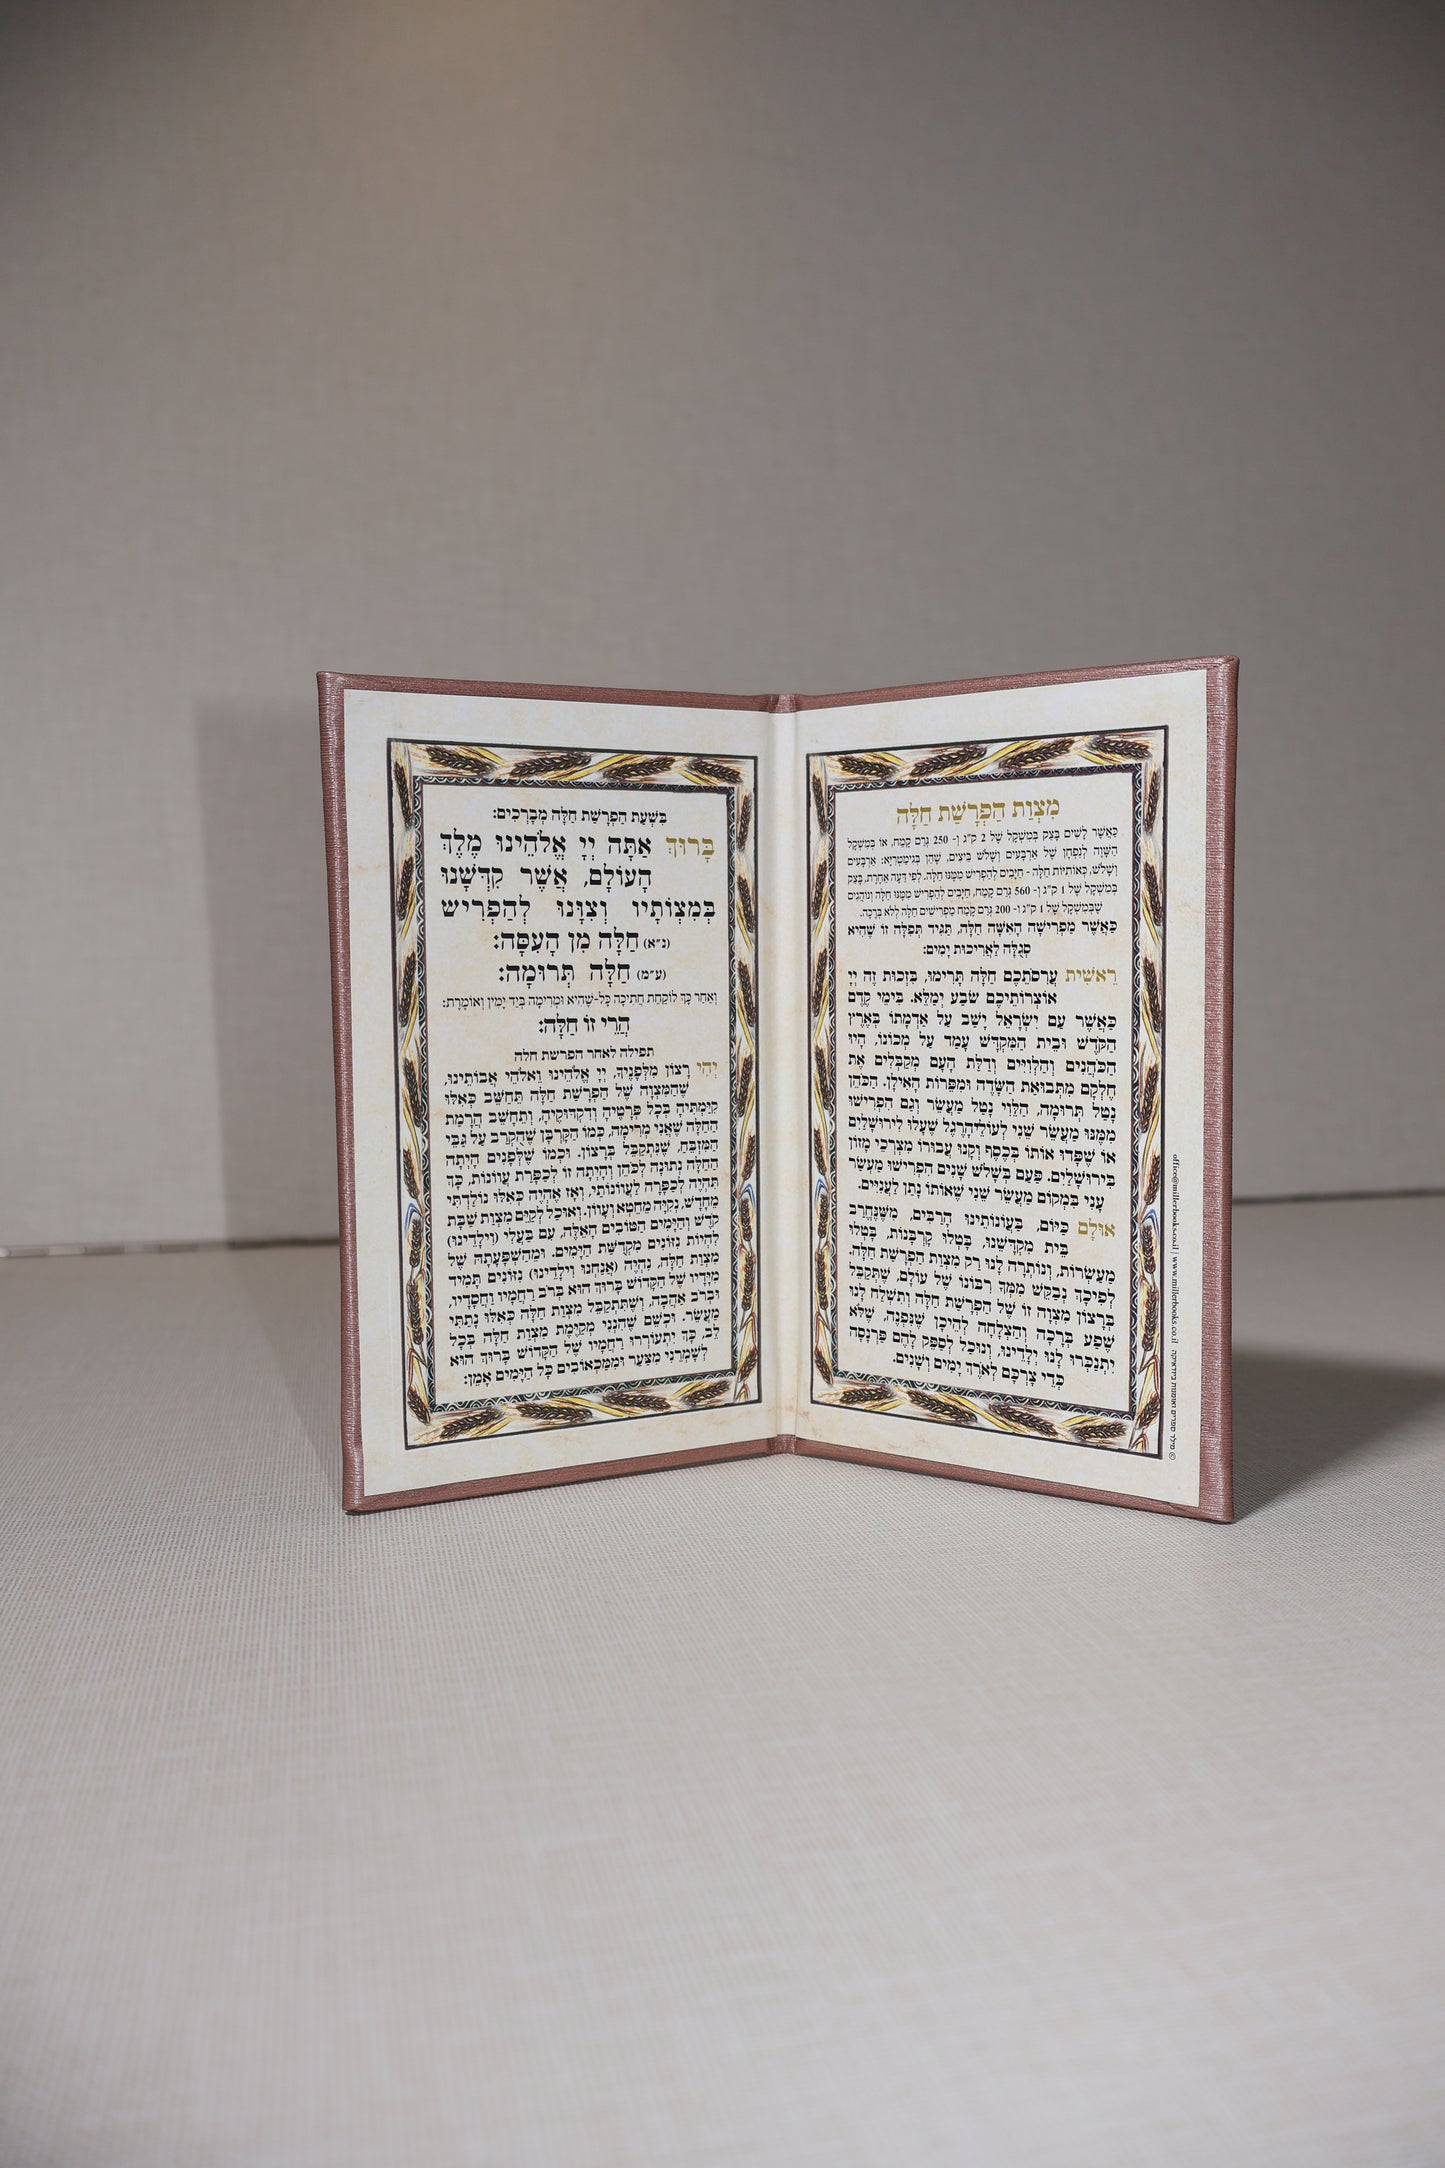 מִצְוַת הַפְרָשַׁת חַלָּה
כַּאֲשֶׁר לָשִׁים בָּצֵק בְּמִשְׁקָל שֶׁל 2 ק"ג ו- 250 גְּרַם קֶמַח, אוֹ בְּמִשְׁקָל
הַשָּׁוֶה לְנִפְחָן שֶׁל אַרְבָּעִים וְשָׁלֹשׁ בֵּיצִים, שֶׁהֵן בְּגִימַטְרִיָּא: אַרְבָּעִים
וְשָׁלֹשׁ, כְּאוֹתִיּוֹת חַלָּה - חַיָּבִים לְהַפְרִישׁ מִמֶּנּוּ חַלָּה. לְפִי דֵּעָה אַחֶרֶת, בָּצֵק
בְּמִשְׁקָל שֶׁל 1 ק"ג ו- 560 גְּרַם קֶמַח, חַיָּבִים לְהַפְרִישׁ מִמֶּנּוּ חַלָּה וְנוֹהֲגִים
שֶׁבְּמִשְׁקָל שֶׁל 1 ק"ג ו- 200 גְּרַם קֶמַח מַפְרִישִׁים חַלָּה לְלֹא בְּרָכָה.
כַּאֲשֶׁר מַפְרִישָׁה הָאִשָּׁה חַלָּה, תַּגִּיד תְּפִלָּה זוֹ שֶׁהִיא
סְגֻלָּה לַאֲרִיכוּת יָמִים:
רֵאשִׁית עֲרִסֹתֵכֶם חַלָּה תָּרִימוּ, בִּזְכוּת זֶה יְיָ
אוֹצְרוֹתֵיכֶם שֹׂבַע יְמַלֵּא. בִּימֵי קֶדֶם
כַּאֲשֶׁר עַם יִשְׂרָאֵל יָשַׁב עַל אַדְמָתוֹ בְּאֶרֶץ
הַקֹּדֶשׁ וּבֵית הַמִּקְדָּשׁ עָמַד עַל מְכוֹנוֹ, הָיוּ
הַכֹּהֲנִים וְהַלְוִיִּים וְדַלַּת הָעָם מְקַבְּלִים אֶת
חֶלְקָם מִתְּבוּאַת הַשָּׂדֶה וּמִפֵּרוֹת הָאִילָן. הַכֹּהֵן
נָטַל תְּרוּמָה, הַלֵּוִי נָטַל מַעֲשֵׂר וְגַם הִפְרִישׁוּ
מִמֶּנּוּ מַעֲשֵׂר שֵׁנִי לְעוֹלֵי-הָרֶגֶל שֶׁעָלוּ לִירוּשָׁלַיִם
אוֹ שֶׁפָּדוּ אוֹתוֹ בְּכֶסֶף וְקָנוּ עֲבוּרוֹ מִצְרְכֵי מָזוֹן
בִּירוּשָׁלַיִם. פַּעַם בְּשָׁלֹשׁ שָׁנִים הִפְרִישׁוּ מַעֲשַׂר
עָנִי בִּמְקוֹם מַעֲשֵׂר שֵׁנִי שֶׁאוֹתוֹ נָתַן לַעֲנִיִּים.
אוּלָם כַּיּוֹם, בַּעֲוֹנוֹתֵינוּ הָרַבִּים, מִשֶּׁנֶּחֱרַב
בֵּית מִקְדָּשֵׁנוּ, בָּטְלוּ קָרְבָּנוֹת, בָּטְלוּ
מַעַשְׂרוֹת, וְנוֹתְרָה לָנוּ רַק מִצְוַת הַפְרָשַׁת חַלָּה.
לְפִיכָךְ נְבַקֵּשׁ מִמְּךָ רִבּוֹנוֹ שֶׁל עוֹלָם, שֶׁתְּקַבֵּל
בְּרָצוֹן מִצְוָה זוֹ שֶׁל הַפְרָשַׁת חַלָּה וְתִשְׁלַח לָנוּ
שֶׁפַע בְּרָכָה וְהַצְלָחָה לְהֵיכָן שֶׁנִּפְנֶה, שֶׁלֹּא
יִתְנַכְּרוּ לָנוּ יְלָדֵינוּ, וְנוּכַל לְסַפֵּק לָהֶם פַּרְנָסָה
כְּדֵי צָרְכָּם לְאֹרֶךְ יָמִים וְשָׁנִים.
© מילר ספרים והפצות ביודאיקה office@millerbooks.co.il | www.millerbooks.co.il
בִּשְׁעַת הַפְרָשַׁת חַלָּה מְבָרְכִים:
בָּרוּךְ אַתָּה יְיָ אֱלֹהֵינוּ מֶלֶךְ
הָעוֹלָם, אֲשֶׁר קִדְּשָׁנוּ
בְּמִצְוֹתָיו וְצִוָּנוּ לְהַפְרִישׁ
(נ"א) חַלָּה מִן הָעִסָּה:
(ע"מ) חַלָּה תְּרוּמָה:
וְאַחַר כָּךְ לוֹקַחַת חֲתִיכָה כָּל-שֶׁהִיא וּמְרִימָה בְּיַד יָמִין וְאוֹמֶרֶת:
הֲרֵי זוֹ חַלָּה:
תפילה לאחר הפרשת חלה
יְהִי רָצוֹן מִלְּפָנֶיךָ, יְיָ אֱלֹהֵינוּ וֵאלֹהֵי אֲבוֹתֵינוּ,
שֶׁהַמִּצְוָה שֶׁל הַפְרָשַׁת חַלָּה תֵּחָשֵׁב כְּאִלּוּ
קִיַּמְתִּיהָ בְּכָל פְּרָטֶיהָ וְדִקְדּוּקֶיהָ, וְתֵחָשֵׁב הֲרָמַת
הַחַלָּה שֶׁאֲנִי מְרִימָה, כְּמוֹ הַקָּרְבָּן שֶׁהֻקְרַב עַל גַּבֵּי
הַמִּזְבֵּחַ, שֶׁנִּתְקַבֵּל בְּרָצוֹן. וּכְמוֹ שֶׁלְּפָנִים הָיְתָה
הַחַלָּה נְתוּנָה לַכֹּהֵן וְהָיְתָה זוֹ לְכַפָּרַת עֲוֹונוֹת, כָּךְ
תִּהְיֶה לְכַפָּרָה לַעֲוֹונוֹתַי, וְאָז אֶהְיֶה כְּאִלּוּ נוֹלַדְתִּי
מֵחָדָשׁ, נְקִיָּה מֵחֵטְא וְעָוֹון. וְאוּכַל לְקַיֵּם מִצְוַת שַׁבָּת
קֹדֶשׁ וְהַיָּמִים הַטּוֹבִים הָאֵלֶּה, עִם בַּעֲלִי (וִילָדֵינוּ)
לִהְיוֹת נִזּוֹנִים מִקְּדֻשַּׁת הַיָּמִים. וּמֵהַשְׁפָּעָתָהּ שֶׁל
מִצְוַת חַלָּה, נִהְיֶה (אֲנַחְנוּ וִילָדֵינוּ) נִזּוֹנִים תָּמִיד
מִיָּדָיו שֶׁל הַקָּדוֹשׁ בָּרוּךְ הוּא בְּרֹב רַחֲמָיו וַחֲסָדָיו,
וּבְרֹב אַהֲבָה, וְשֶׁתִּתְקַבֵּל מִצְוַת חַלָּה כְּאִלּוּ נָתַתִּי
מַעֲשֵׂר. וּכְשֵׁם שֶׁהִנְנִי מְקַיֶּמֶת מִצְוַת חַלָּה בְּכָל
לֵב, כָּךְ יִתְעוֹרְרוּ רַחֲמָיו שֶׁל הַקָּדוֹשׁ בָּרוּךְ הוּא
לְשָׁמְרֵנִי מִצַּעַר וּמִמַּכְאוֹבִים כָּל הַיָּמִים אָמֵן: